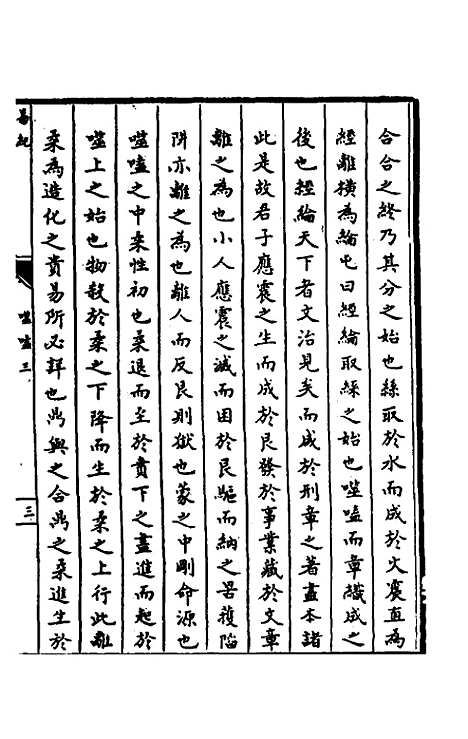 合合之終乃其分之始也絲取於水而成於火震直為
經離横為綸屯曰經綸取綵之始也噬嗑而章織成之
後也經綸天下者文治見矣而成於刑章之著盡本諸
此是故君子應震之生而成於艮發於事業藏於文章
離之為也小人應震之滅而困於艮驅而納之罟擭陷
阱亦離之為也離人而反艮則獄也蒙之中剛命源也
噬嗑之中柔性初也柔退而至於賁下之盡進而起於
噬上之始也物殺於柔之下降而生於柔之上行此離
柔為造化之貴易所必詳也鼎與之合鼎之柔進生於
噬嗑三
三